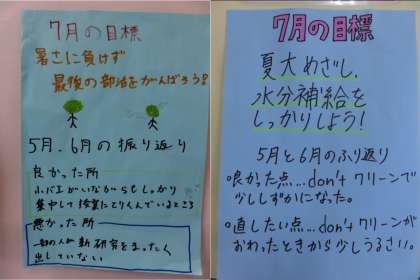 7月の目標
暑さに負けず
最後の部活をがんばろう!
5月、6月の振り返り
良かった所
集中して検査にとりくんでいるところ
悪かった所
一部の人が新研究をまったく
出していない
7月の目標
夏大めざし、
水分補給を
しっかりしよう!
5月と6月のふり返り
良かった点…don't クリーンで
少ししずかになった。
直したい点…don't クリーンが
おわったときから少しうるさい。